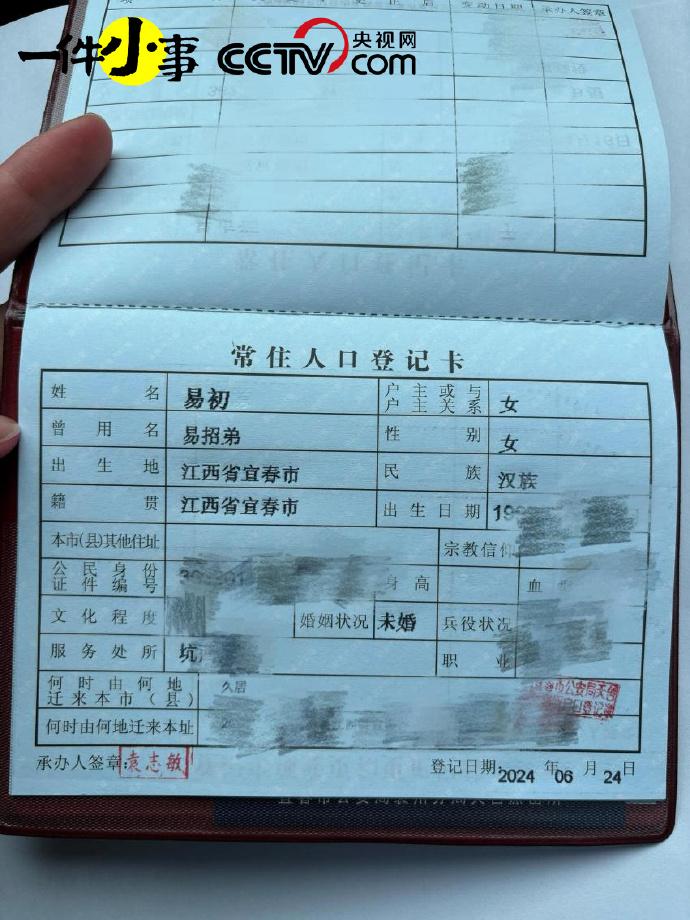 一件小事 CCTV 央视网 com
项 变动日期 承办人签章
常住人口登记卡
姓名 易初 户主或与户主关系 女
曾用名 易招弟 性别 女
出生地 江西省宜春市 民族 汉族
籍贯 江西省宜春市 出生日期 19
本市(县)其他住址 宗教信仰
公民身份证件编号 身高 血
文化程度 婚姻状况 未婚 兵役状况
服务处所 坑 职业
何时由何地迁来本市(县) 久居
何时由何地迁来本址
承办人签章: 袁志敏 登记日期: 2024 年 06 月 24 日